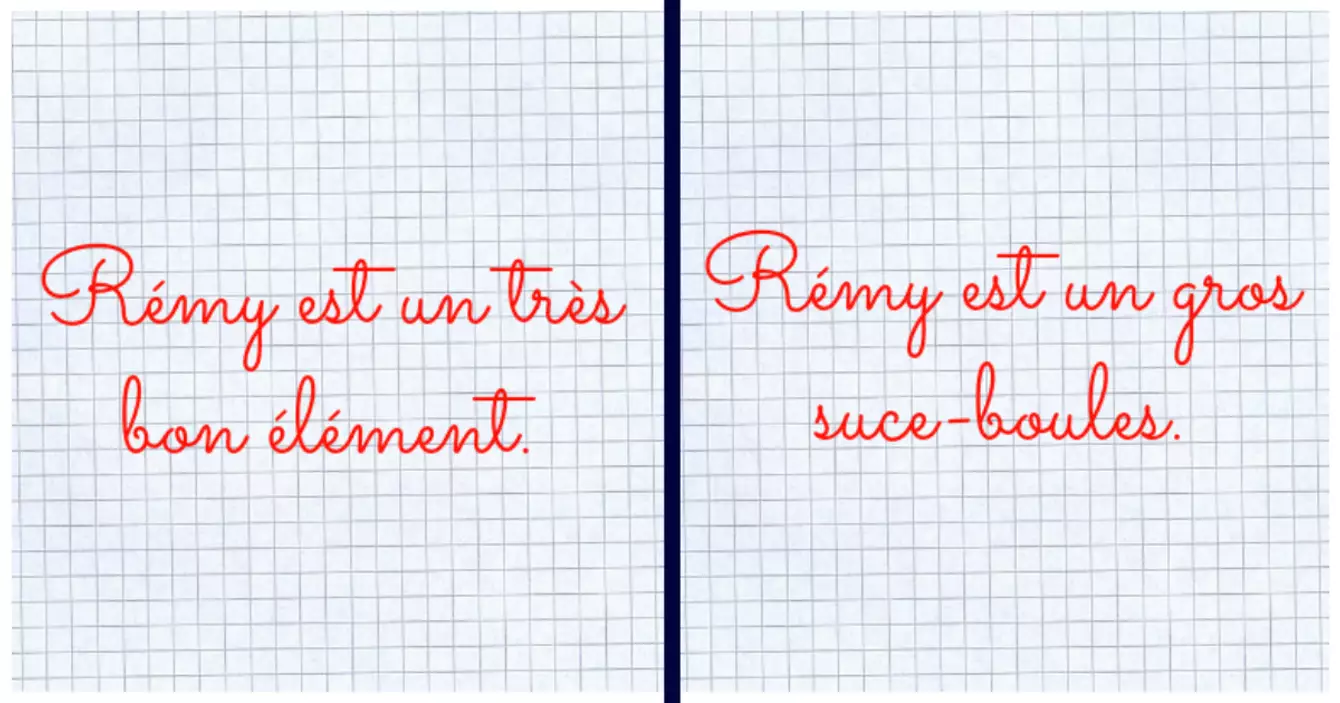 Rémy est un très
bon élément.
Rémy est un gros
suce-boules.